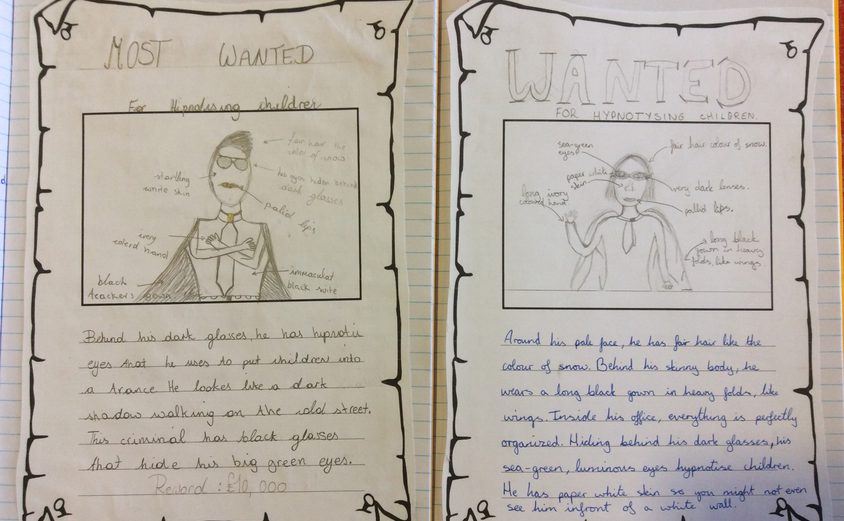 MOST WANTED
For Hipnotising children
fair hair the
color of snow
his eyes hidden behind
dark glasses
startling
white skin
palid lips
ivory
colerd hand
black
teachers gown
immaculat
black suite
Behind his dark glasses, he has hipnotic
eyes that he uses to put children into
a trance He lookes like a dark
shadow walking on the old street.
This criminal has black glasses
that hide his big green eyes.
Reword : £10,000
WANTED
FOR HYPNOTYSING CHILDREN.
sea-green
eyes
fair hair colour of snow.
paper white
skin
very dark lenses.
long ivory
coloured hand
pallid lips.
long black
gown in heavy
folds, like wings.
Around his pale face, he has fair hair like the
colour of snow. Behind his skinny body, he
wears a long black gown in heavy folds, like
wings. Inside his office, everything is perfectly
organized. Hiding behind his dark glasses, his
sea-green, luminous eyes hypnotise children.
He has paper white skin so you might not even
see him infront of a white wall.